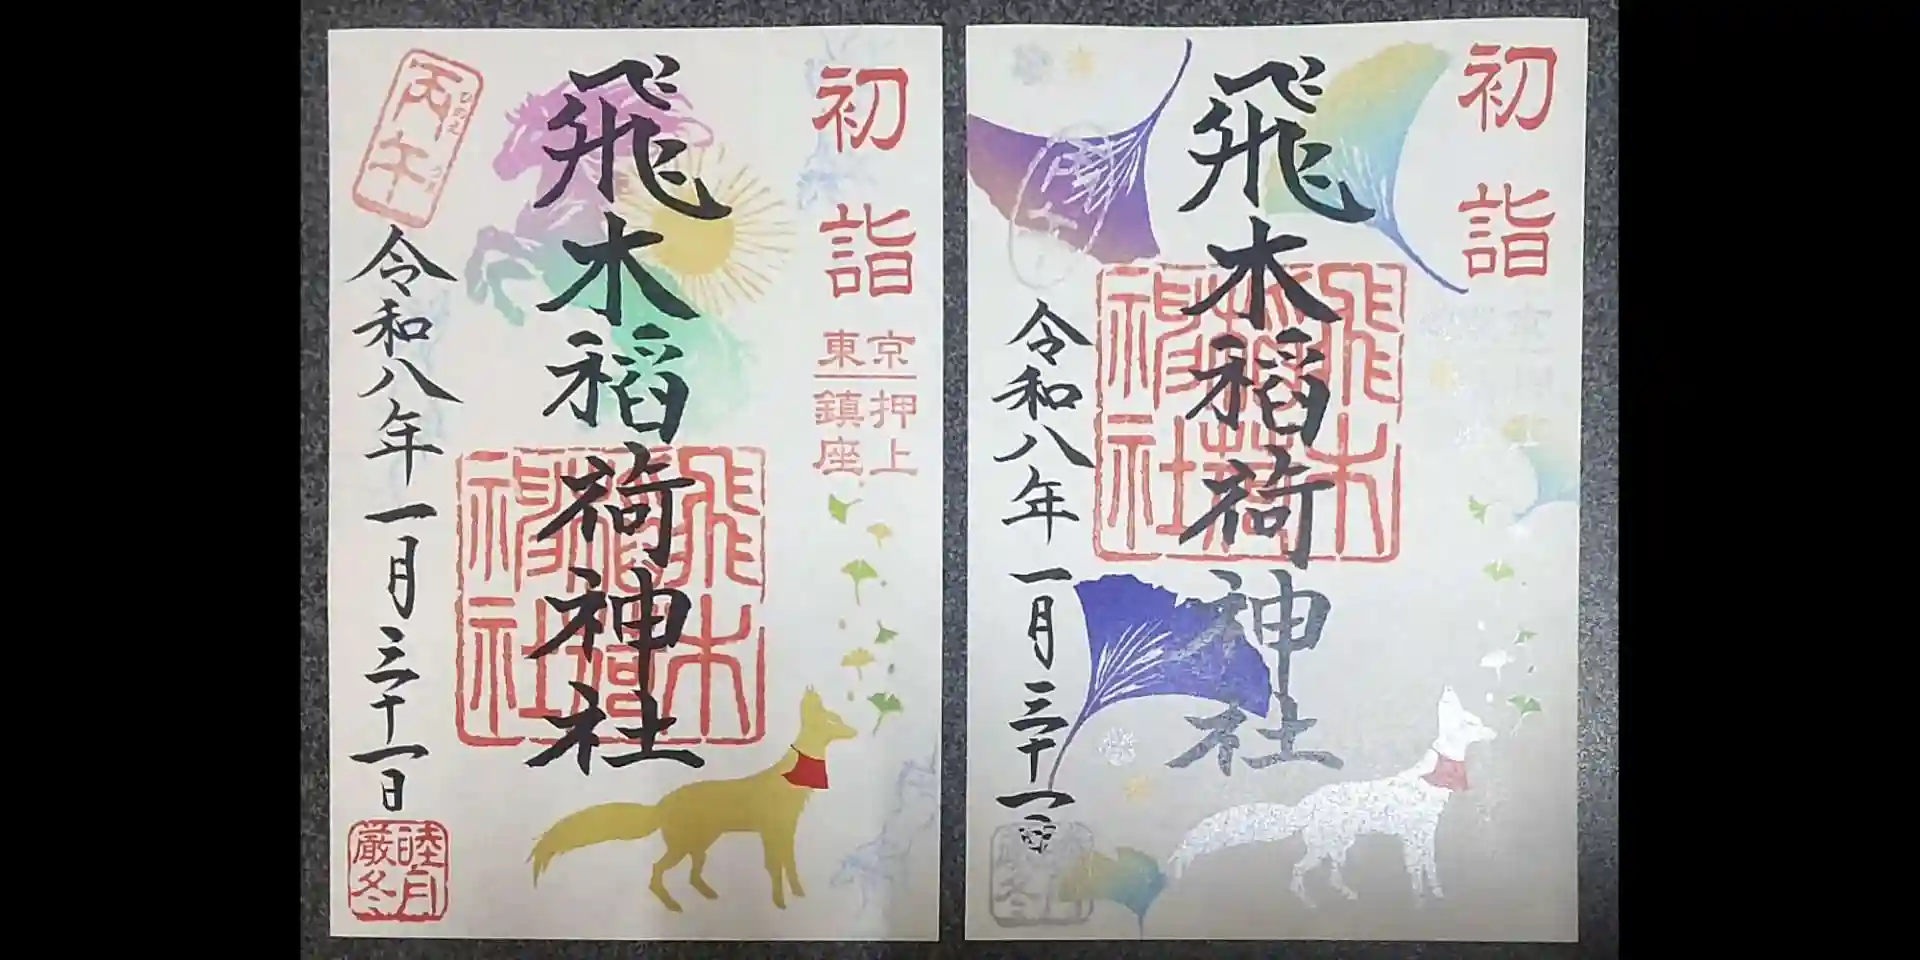 初詣
東京
鎮座
押上
飛木稲荷神社
飛木稲荷神社
丙午
令和八年一月三十一日
睦月
厳冬
初詣
飛木稲荷神社
飛木稲荷神社
丙午
令和八年一月三十一日